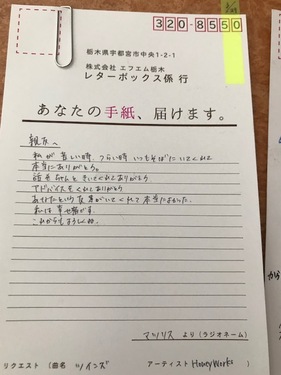 320-8550
栃木県宇都宮市中央1-2-1
株式会社 エフエム栃木
レターボックス係 行
あなたの手紙、届けます。
親友へ
私が苦しい時、つらい時 いつもそばにいてくれて
本当にありがとう。
話をちゃんときいてくれてありがとう
アドバイスをくれてありがとう
あなたという友達がいてくれて本当によかった。
私は幸せ者です。
これからもよろしくね。
マツリス より(ラジオネーム)
リクエスト(曲名 ツインズ アーティスト HoneyWorks )